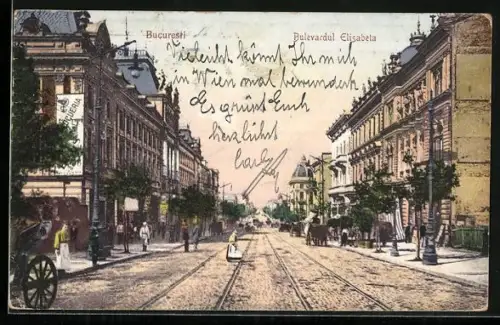 Bucuresti
Bulevardul Elisabeta
Vieleicht könnt Ihr mich
in Wien mal bewundern
Es grüsst Euch
herzlichst
Carl